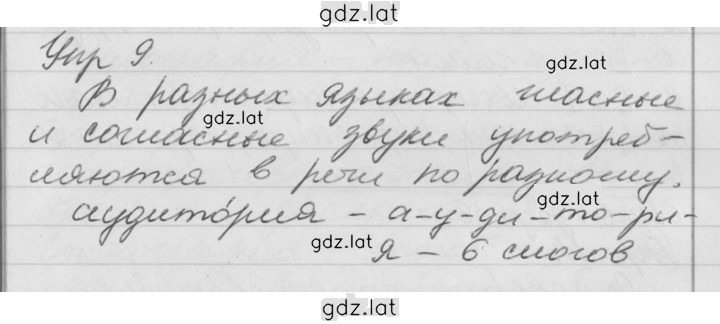 gdz.lat
Упр 9.
gdz.lat
В разных языках гласные
gdz.lat
и согласные звуки употреб-
ляются в речи по разному.
аудито́рия - а-у-ди-то-ри-
gdz.lat
я - 6 слогов
gdz.lat